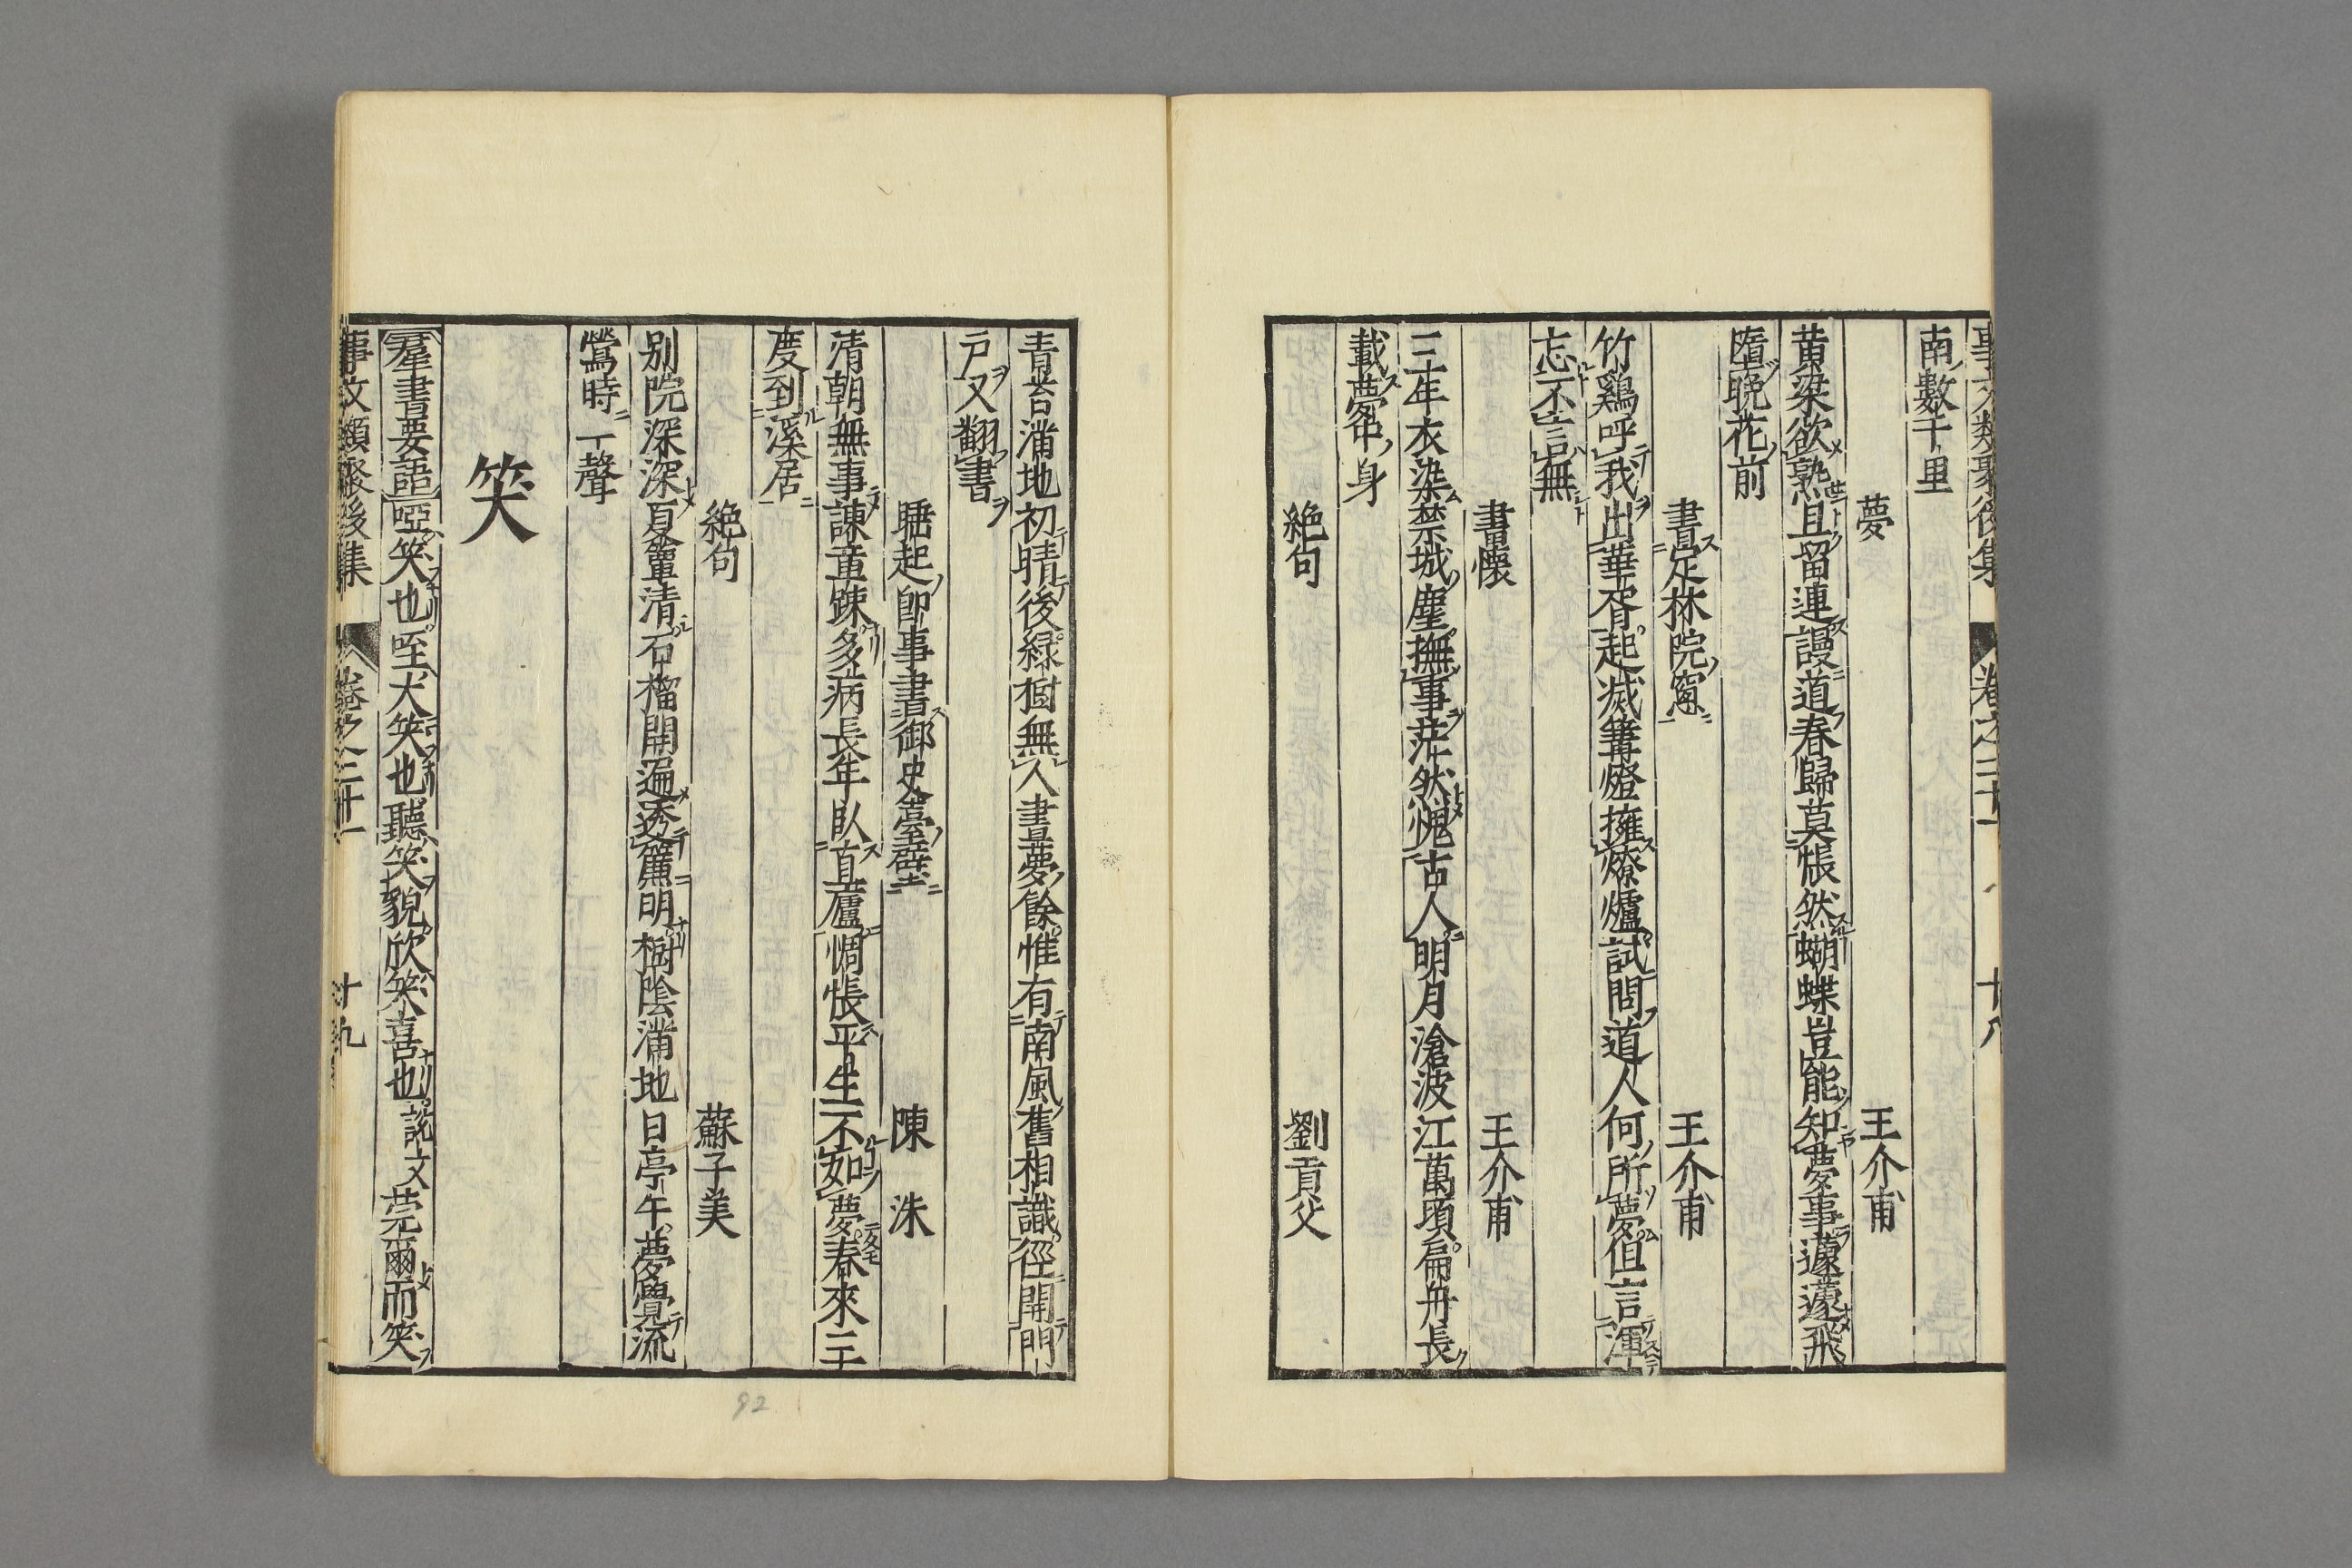 事文類聚後集 卷之二十一 十八
南數千里
夢 王介甫
黄粱欲熟且留連謾道春歸莫悵然蝴蝶豈能知夢事蘧蘧飛
墮晚花前
書定林院窻 王介甫
竹鷄呼我出華胥起滅篝燈擁燎爐試問道人何所夢但言渾
忘不言無
書懷 王介甫
三年衣染禁城塵撫事茫然愧古人明月滄波江萬頃扁舟長
載夢中身
絶句 劉貢父
青苔滿地初晴後緑樹無人晝夢餘惟有南風舊相識徑開門
戸又翻書
睡起即事書御史臺壁 陳洙
清朝無事諫章踈多病長年臥直廬惆悵平生不如夢春來三
度到溪居
絶句 蘇子美
別院深深夏簟清石榴開遍透簾明樹陰滿地日亭午夢覺流
鶯時一聲
笑
羣書要語啞笑也咥大笑也聽笑貌欣笑喜也説文莞爾而笑
事文類聚後集 卷之二十一 十九